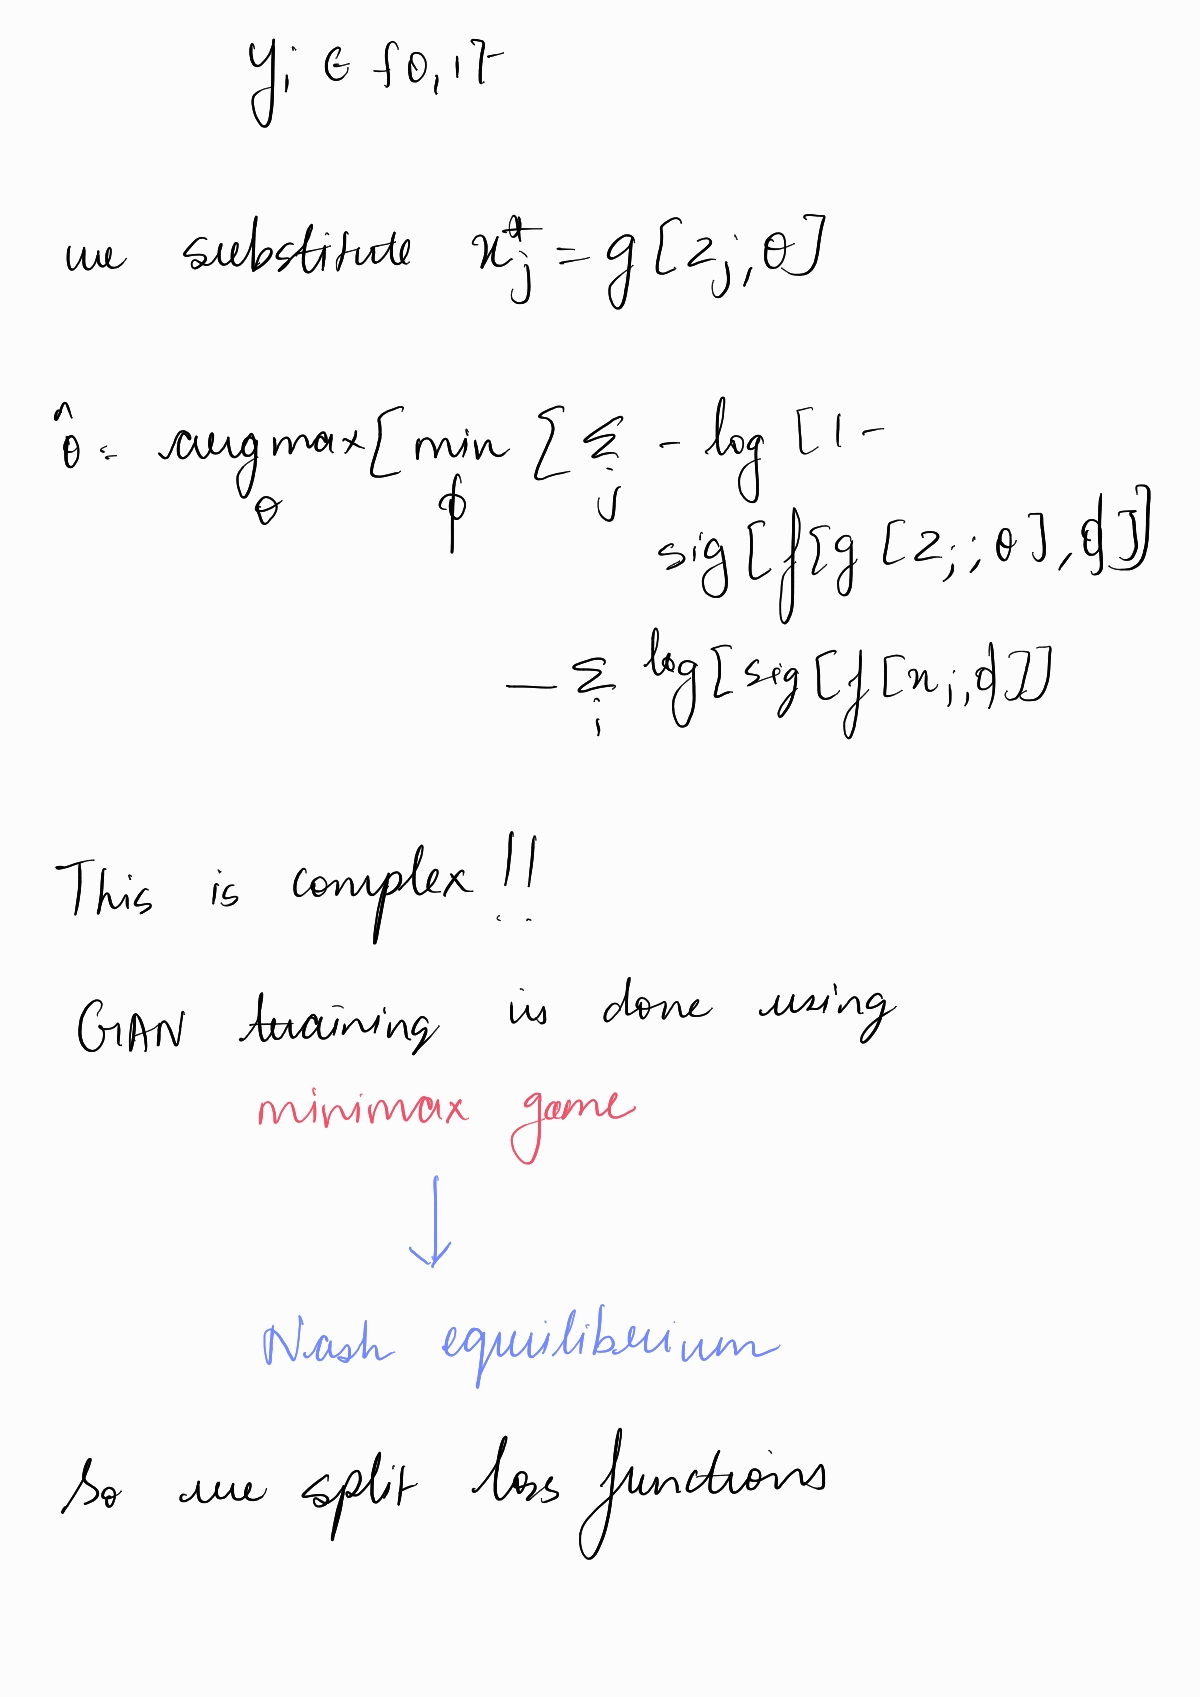 y_i ∈ {0,1}
we substitute x*_j = g[z_j, θ]
θ̂ = argmax_θ [ min_ϕ [ Σ_j - log [1 -
sig[f[g[z_j; θ], ϕ]]
— Σ_i log[sig[f[x_i, ϕ]]]
This is complex !!
GAN training is done using
minimax game
↓
Nash equiliberium
So we split loss functions